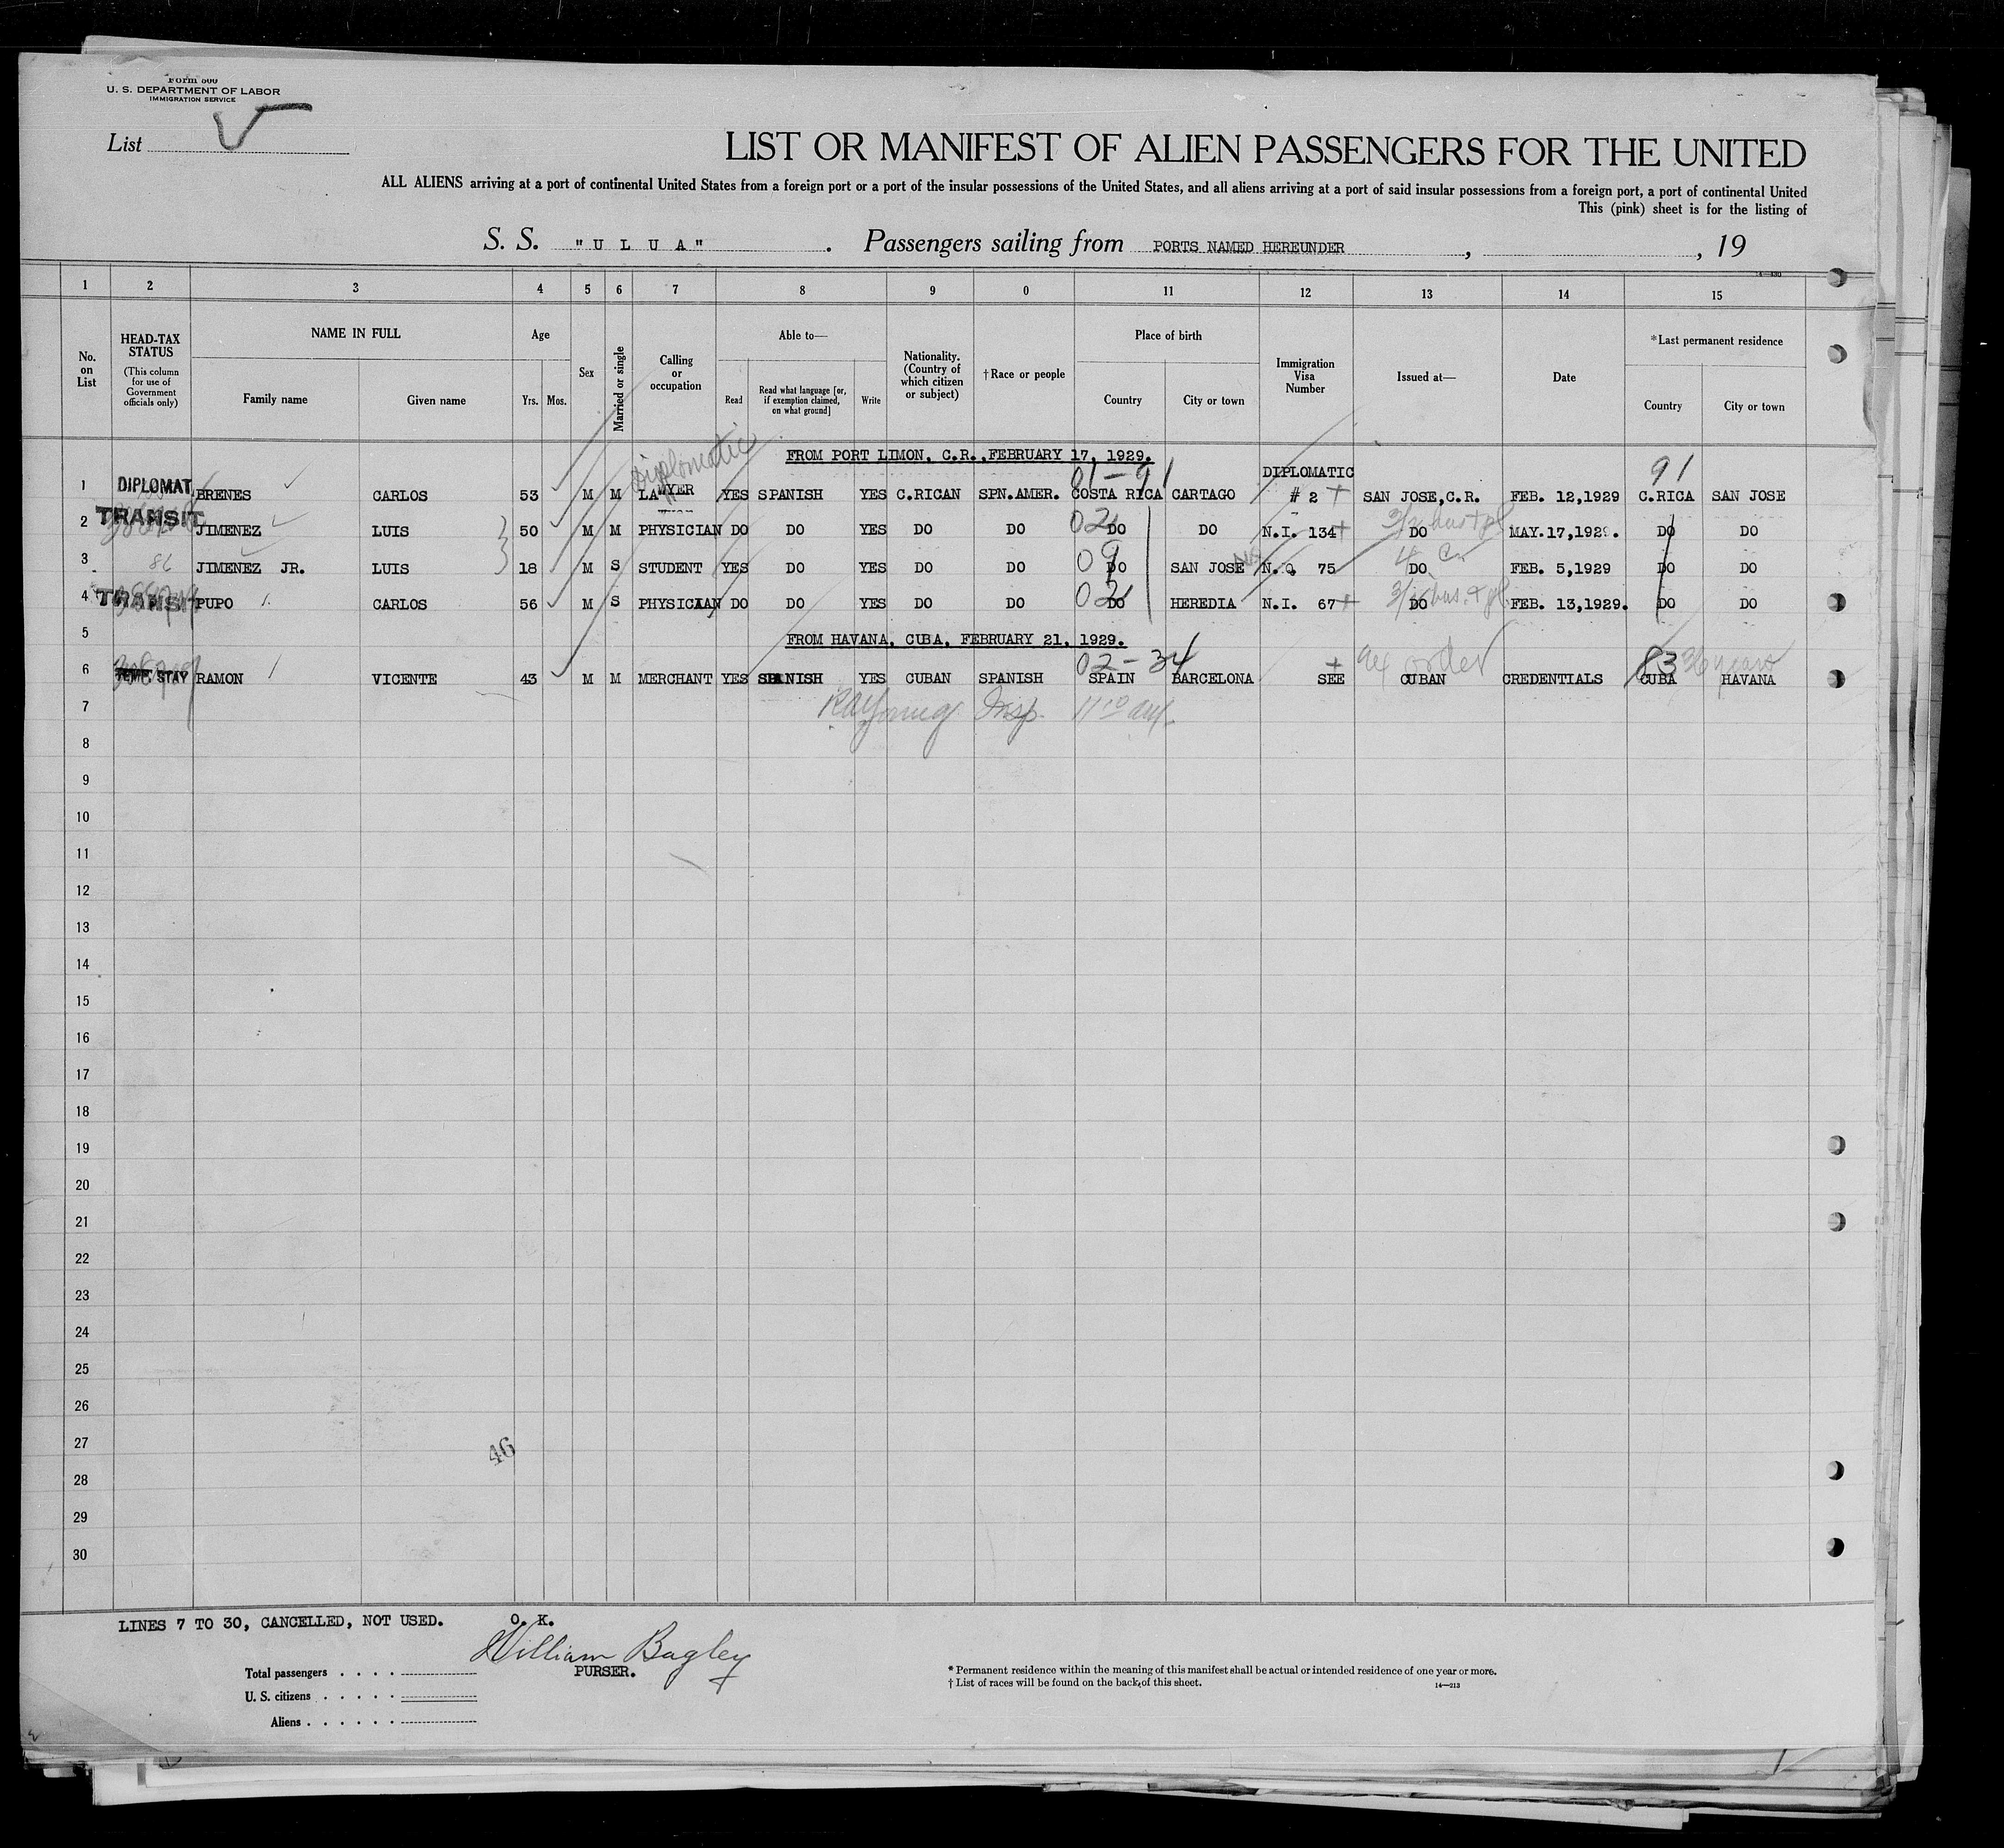 Form 500
U. S. DEPARTMENT OF LABOR
IMMIGRATION SERVICE
List
LIST OR MANIFEST OF ALIEN PASSENGERS FOR THE UNITED
ALL ALIENS arriving at a port of continental United States from a foreign port or a port of the insular possessions of the United States, and all aliens arriving at a port of said insular possessions from a foreign port, a port of continental United
This (pink) sheet is for the listing of
S. S. "U L U A" . Passengers sailing from PORTS NAMED HEREUNDER , , 19
14—430
1 2 3 4 5 6 7 8 9 0 11 12 13 14 15
No. on List
HEAD-TAX STATUS (This column for use of Government officials only)
NAME IN FULL
Family name Given name
Age
Yrs. Mos.
Sex
Married or single
Calling or occupation
Able to—
Read Read what language [or, if exemption claimed, on what ground] Write
Nationality. (Country of which citizen or subject)
†Race or people
Place of birth
Country City or town
Immigration Visa Number
Issued at—
Date
*Last permanent residence
Country City or town
FROM PORT LIMON, C.R.,FEBRUARY 17, 1929.
Diplomatic 01-91 91
1 DIPLOMAT BRENES CARLOS 53 M M LAWYER YES SPANISH YES C.RICAN SPN.AMER. COSTA RICA CARTAGO DIPLOMATIC # 2 SAN JOSE,C.R. FEB. 12,1929 C.RICA SAN JOSE
2 TRANSIT JIMENEZ LUIS 50 M M PHYSICIAN DO DO YES DO DO 02 DO DO N.I. 134 DO MAY.17,1929. DO DO
3 86 JIMENEZ JR. LUIS 18 M S STUDENT YES DO YES DO DO 09 DO SAN JOSE N.Q. 75 DO FEB. 5,1929 DO DO
4 TRANSIT PUPO CARLOS 56 M S PHYSICIAN DO DO YES DO DO 02 DO HEREDIA N.I. 67 DO FEB. 13,1929. DO DO
5 FROM HAVANA, CUBA, FEBRUARY 21, 1929.
02-34 order 83 36 years
6 STAY RAMON VICENTE 43 M M MERCHANT YES SPANISH YES CUBAN SPANISH SPAIN BARCELONA SEE CUBAN CREDENTIALS CUBA HAVANA
7 Insp.
8
9
10
11
12
13
14
15
16
17
18
19
20
21
22
23
24
25
26
27
46
28
29
30
LINES 7 TO 30, CANCELLED, NOT USED. O. K.
William Bagley
PURSER.
Total passengers . . . .
U. S. citizens . . . . .
Aliens . . . . . .
* Permanent residence within the meaning of this manifest shall be actual or intended residence of one year or more.
† List of races will be found on the back of this sheet.
14—213